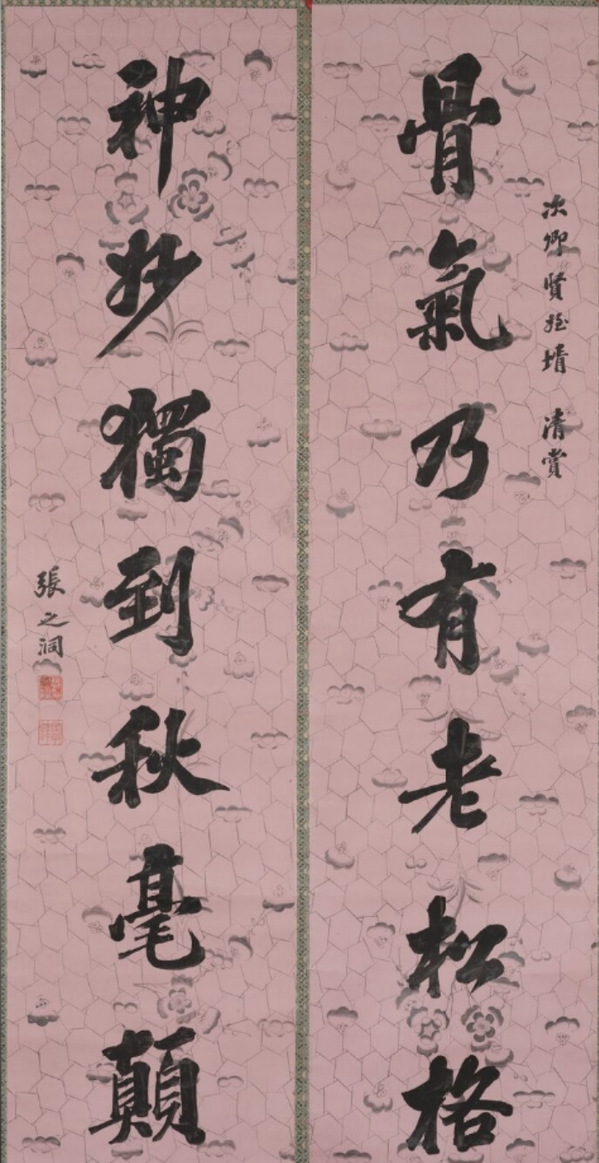 次卿賢姪壻 清賞
骨氣乃有老松格
神妙獨到秋毫顛
張之洞